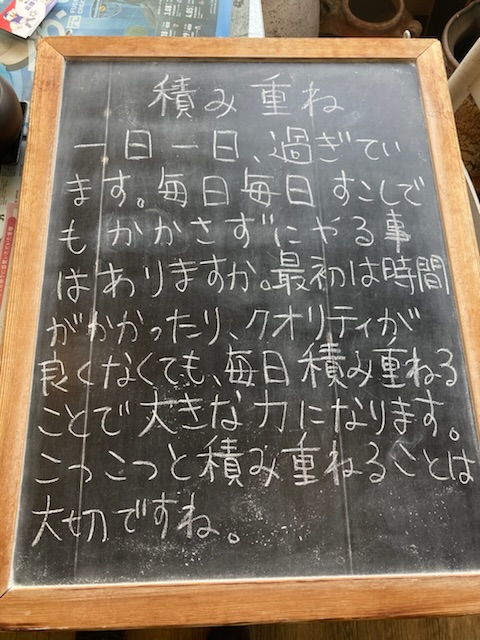 積み重ね
一日一日、過ぎてい
ます。毎日毎日すこしで
もかかさずにやる事
はありますか。最初は時間
がかかったり、クオリティが
良くなくても、毎日積み重ねる
ことで大きな力になります。
こつこつと積み重ねることは
大切ですね。